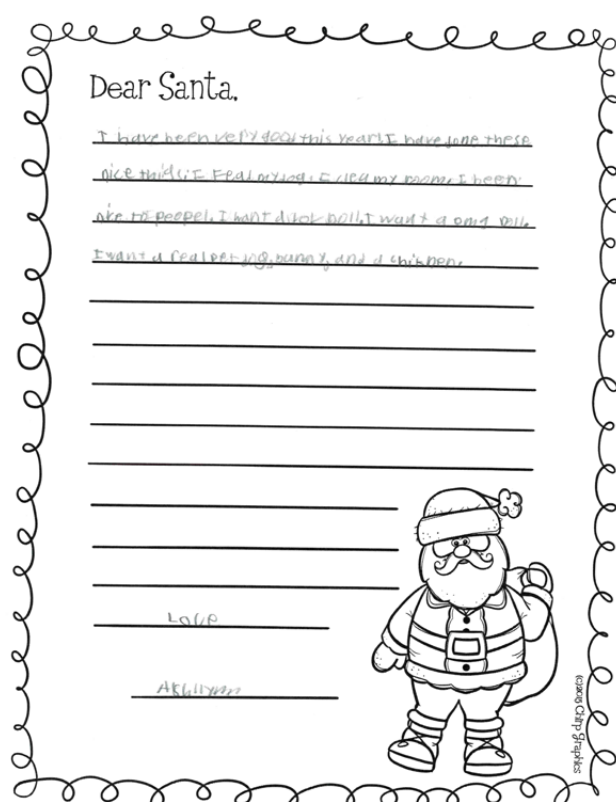 Dear Santa,
I have been very good this year. I have done these
nice thids: I Fead my dog. I clea my room. I been
nice to peopel. I want a doll. I want a omg doll.
I want a real pet dog, bunny, and a chihpen.
Love
(c)2013 Chirp Graphics